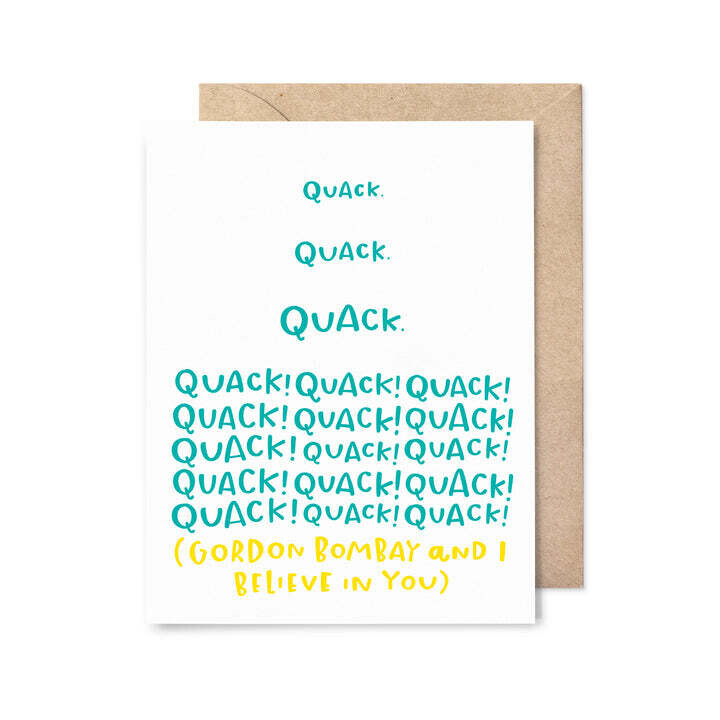 QUACK.
QUACK.
QUACK.
QUACK! QUACK! QUACK!
QUACK! QUACK! QUACK!
QUACK! QUACK! QUACK!
QUACK! QUACK! QUACK!
QUACK! QUACK! QUACK!
(GORDON BOMBAY and I
BELIEVE IN YOU)